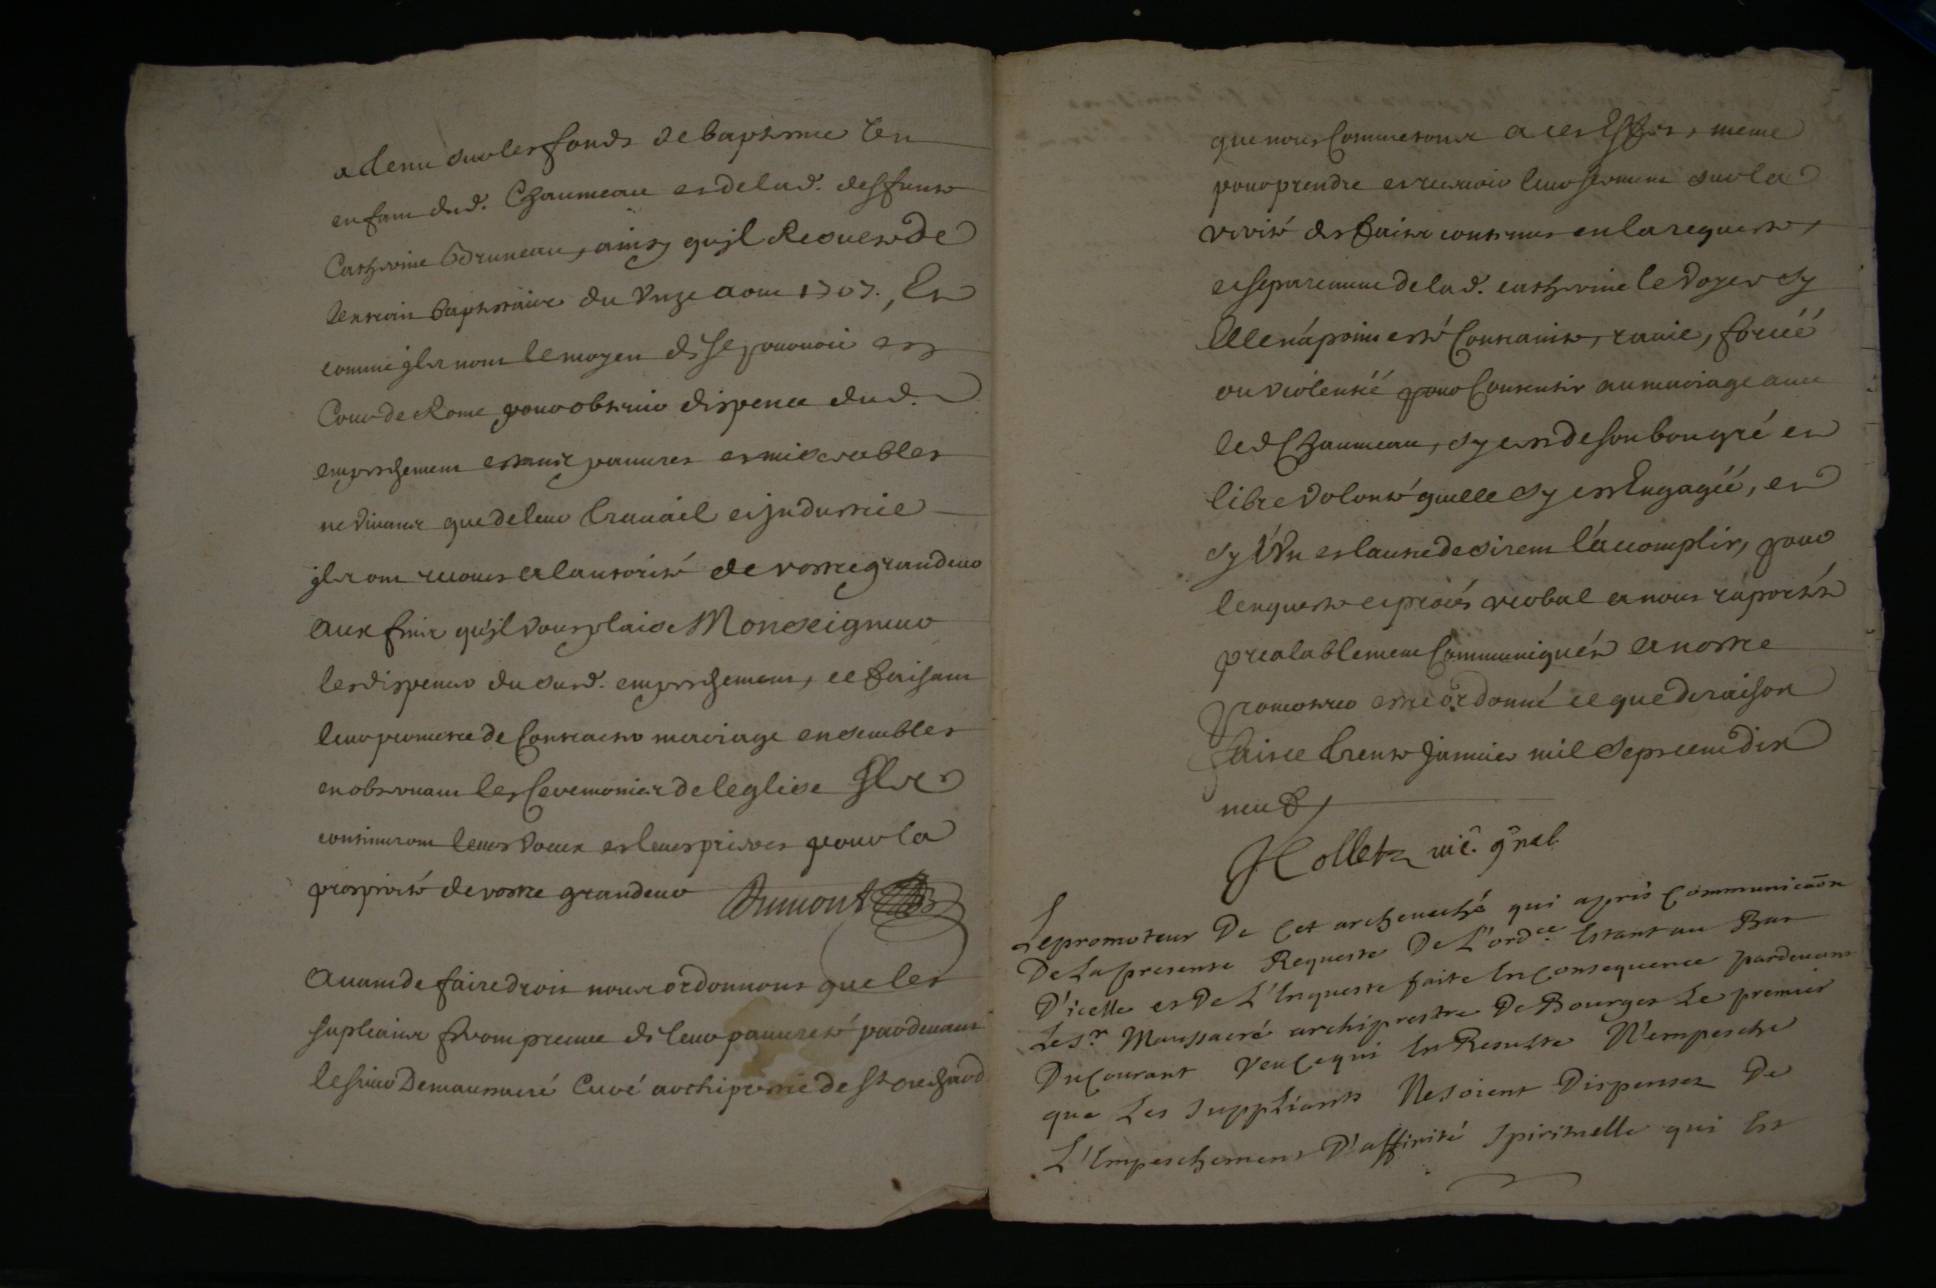 a tenu sur les fonds de baptesme Un
enfant dud. Chaumeau et de lad. deffunte
Catherine Bruneau, ainsy qu'jl Resulte De
lextrait baptistaire du Unze aout 1707., Et
comme jls nont le moyen de se pouruoir en
Cour de Rome pour obtenir dispence dud.
empeschement estant pauures et miserables
ne viuant que de leur trauail et jndustrie
jls ont recours a lautorité de vostre grandeur
Aux fins qu'jl vous plaise Monseigneur
les dispencer du susd. empeschement, ce faisant
leur permettre de Contracter mariage ensembles
en obseruant les Ceremonies de leglise Jls
continuront leurs voeux et leurs prieres pour la
prosperité de vostre grandeur Dumont
Auant de faire droit nous ordonnons que les
suplians feront preuue de leur pauureté pardeuant
le sieur Demaussacré Curé archiprestre de St ... 
que nous Commetons a cet Effet, meme
pour prendre et receuoir leur serment sur la
verité des faits contenus en la requeste,
et separement de lad. catherine le Doyer sy
Elle n'a point esté Contrainte, rauie, forcée
ou violentée pour Consentir au mariage auec
led Chaumeau, sy c'est de son bon gré et
libre volonté quelle sy est Engagée, et
sy l'Un et lautre desirent l'acomplir, pour
lenqueste et procés verbal a nous raportés
prealablement Communiqués a nostre
promoteur estre ordonné ce que de raison
faict ce trente januier mil sept cent dix
neuf,
Collet vic. gnal.
Le promoteur De Cet archeuesché qui aprés Communicaon
De La presente Requeste De L'ordce. Estant au Bas
D'icelle et De L'Enqueste faite En Consequence pardeuant
Le Sr. Maussacré archiprestre De Bourges Le premier
Du Courant Veu Ce qui En Resulte N'empesche
que Les Suppliants Ne soient Dispensez De
L'Empeschement D'affinité Spirituelle qui Est